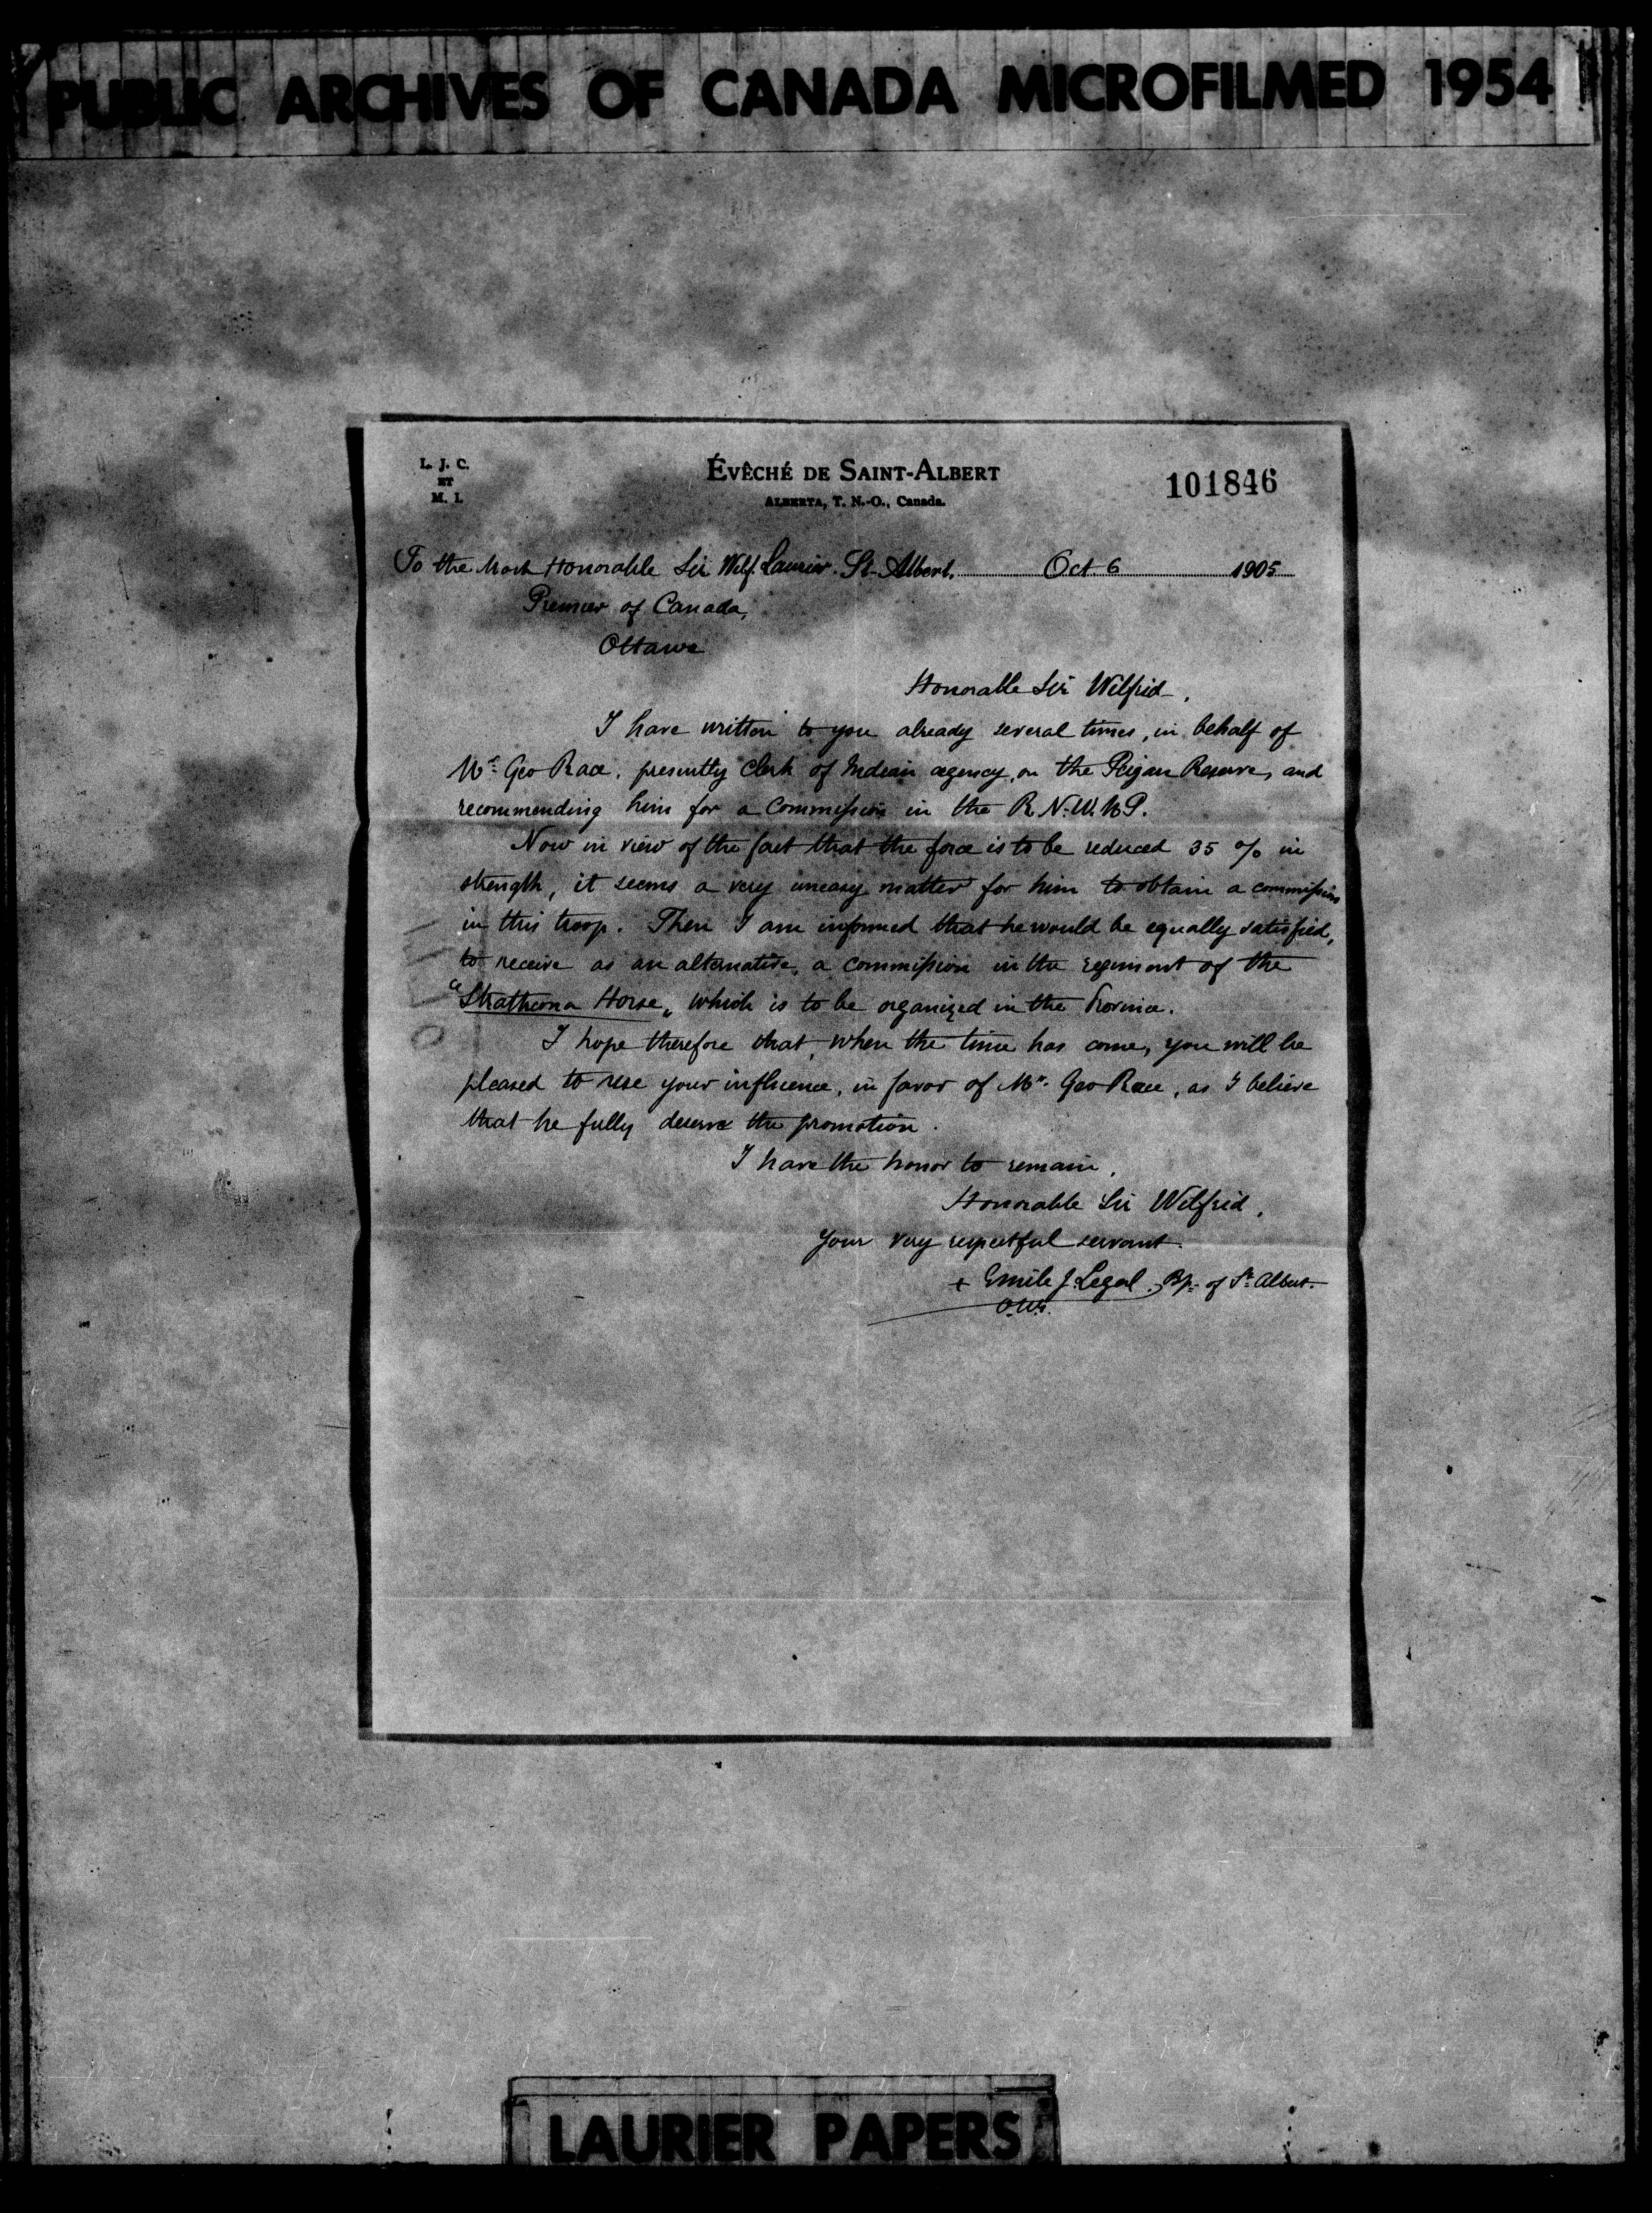 PUBLIC ARCHIVES OF CANADA MICROFILMED 1954
L. J. C.
ET
M. I.
ÉVÊCHÉ DE SAINT-ALBERT
ALBERTA, T. N.-O., Canada.
101846
To the Most Honorable Sir Wilf. Laurier. St-Albert, Oct. 6 1905
Premier of Canada,
Ottawa
Honorable Sir Wilfrid,
I have written to you already several times, in behalf of
Mr. Geo Race, presently Clerk of Indian agency, on the Peigan Reserve, and
recommending him for a Commission in the R. N. W. M P.
Now in view of the fact that the force is to be reduced 35 % in
strength, it seems a very uneasy matter for him to obtain a commission
in this troop. Then I am informed that he would be equally satisfied,
to receive as an alternative, a commission in the regiment of the
"Strathcona Horse„ which is to be organized in the Province.
I hope therefore that, when the time has come, you will be
pleased to use your influence, in favor of Mr. Geo Race, as I believe
that he fully deserve the promotion.
I have the honor to remain,
Honorable Sir Wilfrid,
Your very respectful servant.
+ Emile J. Legal, Bp. of St. Albert.
O.M.I.
LAURIER PAPERS